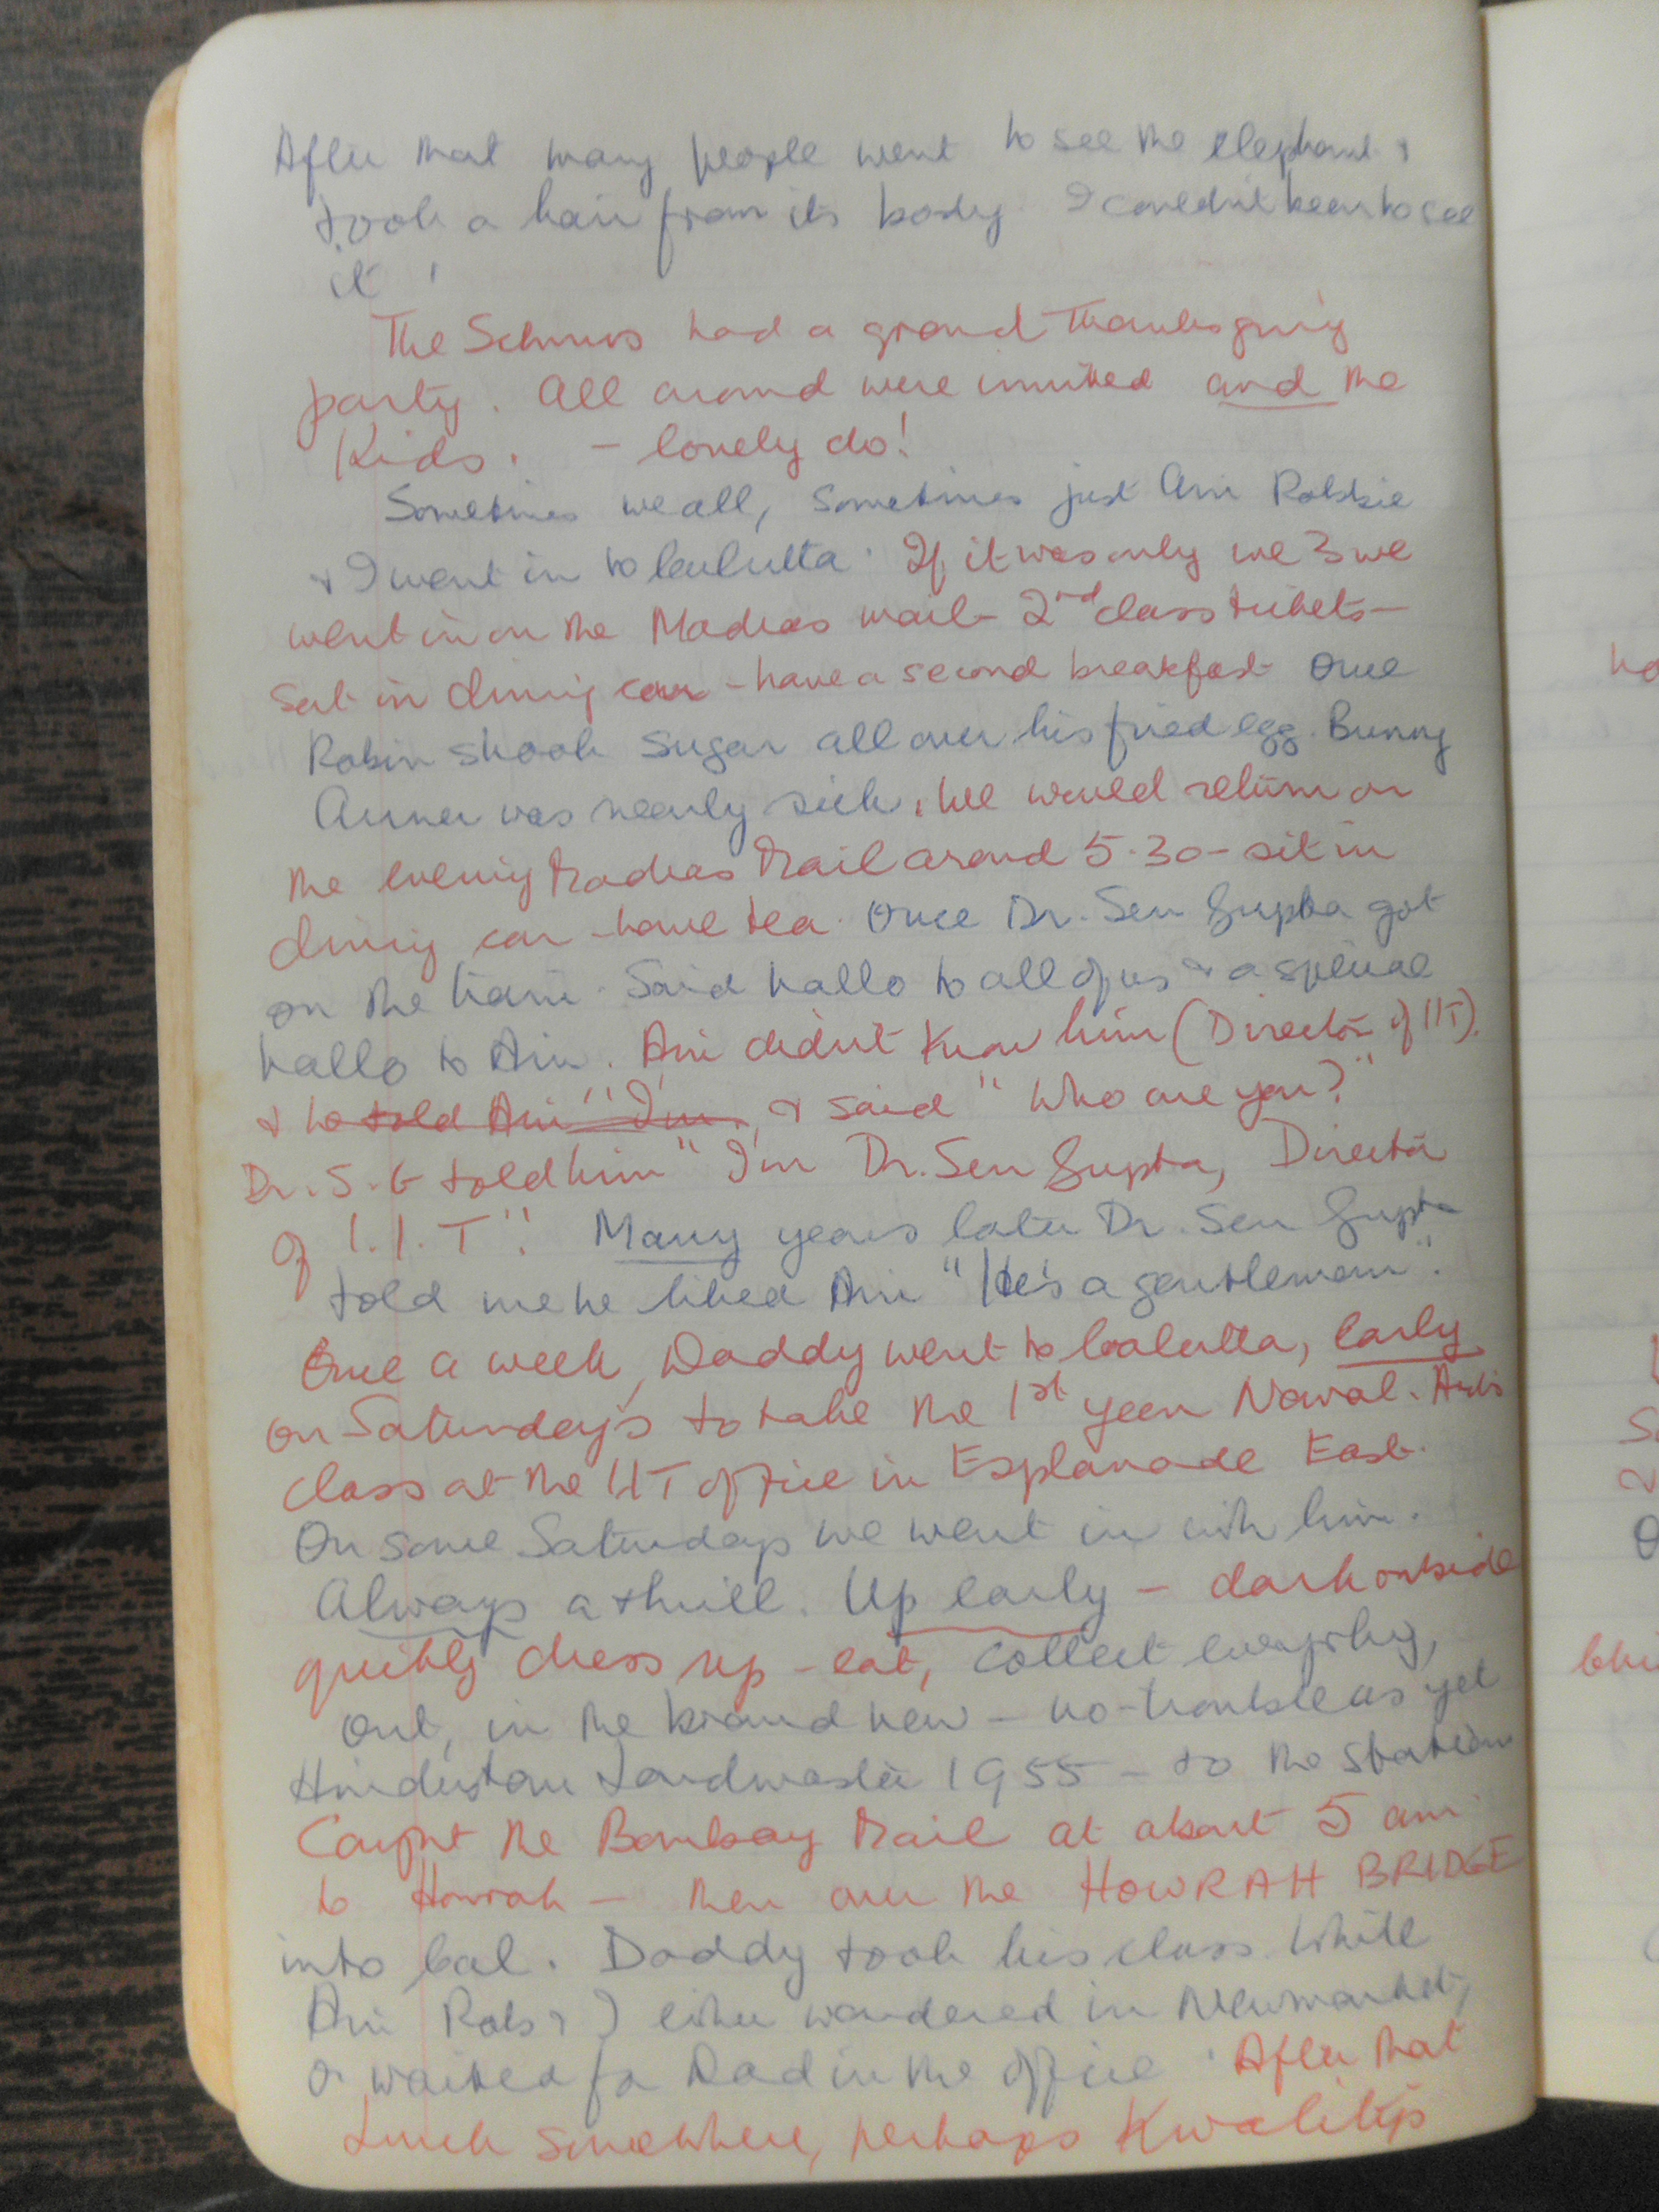 After that many people went to see the elephant &
took a hair from its body. I couldn't bear to see
it!
The had a grand Thanksgiving
party. All around were invited and the
Kids. - lovely do!
Sometimes we all, sometimes just Ari Robbie
& I went in to Calcutta. If it was only we 3 we
went in on the Madras mail - 2nd class tickets -
Sat in dining car - have a second breakfast Once
Robin shook sugar all over his fried egg. Bunny
was nearly sick. We would return on
the evening Madras Mail around 5.30 - sit in
dining car - have tea. Once Dr. Sen Gupta got
on the train. Said hallo to all of us & a special
hallo to Ari. Ari didn't know him (Director of IIT).
& he told Ari "I'm & said "Who are you?"
Dr. S. G told him "I'm Dr. Sen Gupta, Director
of I.I.T". Many years later Dr. Sen Gupta
told me he liked Ari "He's a gentleman".
Once a week, Daddy went to Calcutta, early
on Saturdays to take the 1st year Naval. Arch
class at the IIT office in Esplanade East.
On some Saturdays we went in with him.
Always a thrill. Up early - dark outside
quickly dress up - eat, collect everything,
out, in the brand new - no-trouble as yet
Hindustan Landmaster 1955 - to the station
Caught the Bombay Mail at about 5 am
to Howrah - then over the HOWRAH BRIDGE
into Cal. Daddy took his class. While
Ari Rob & I either wandered in Newmarket,
or waited for Dad in the office. After that
Lunch somewhere, perhaps Kwality's